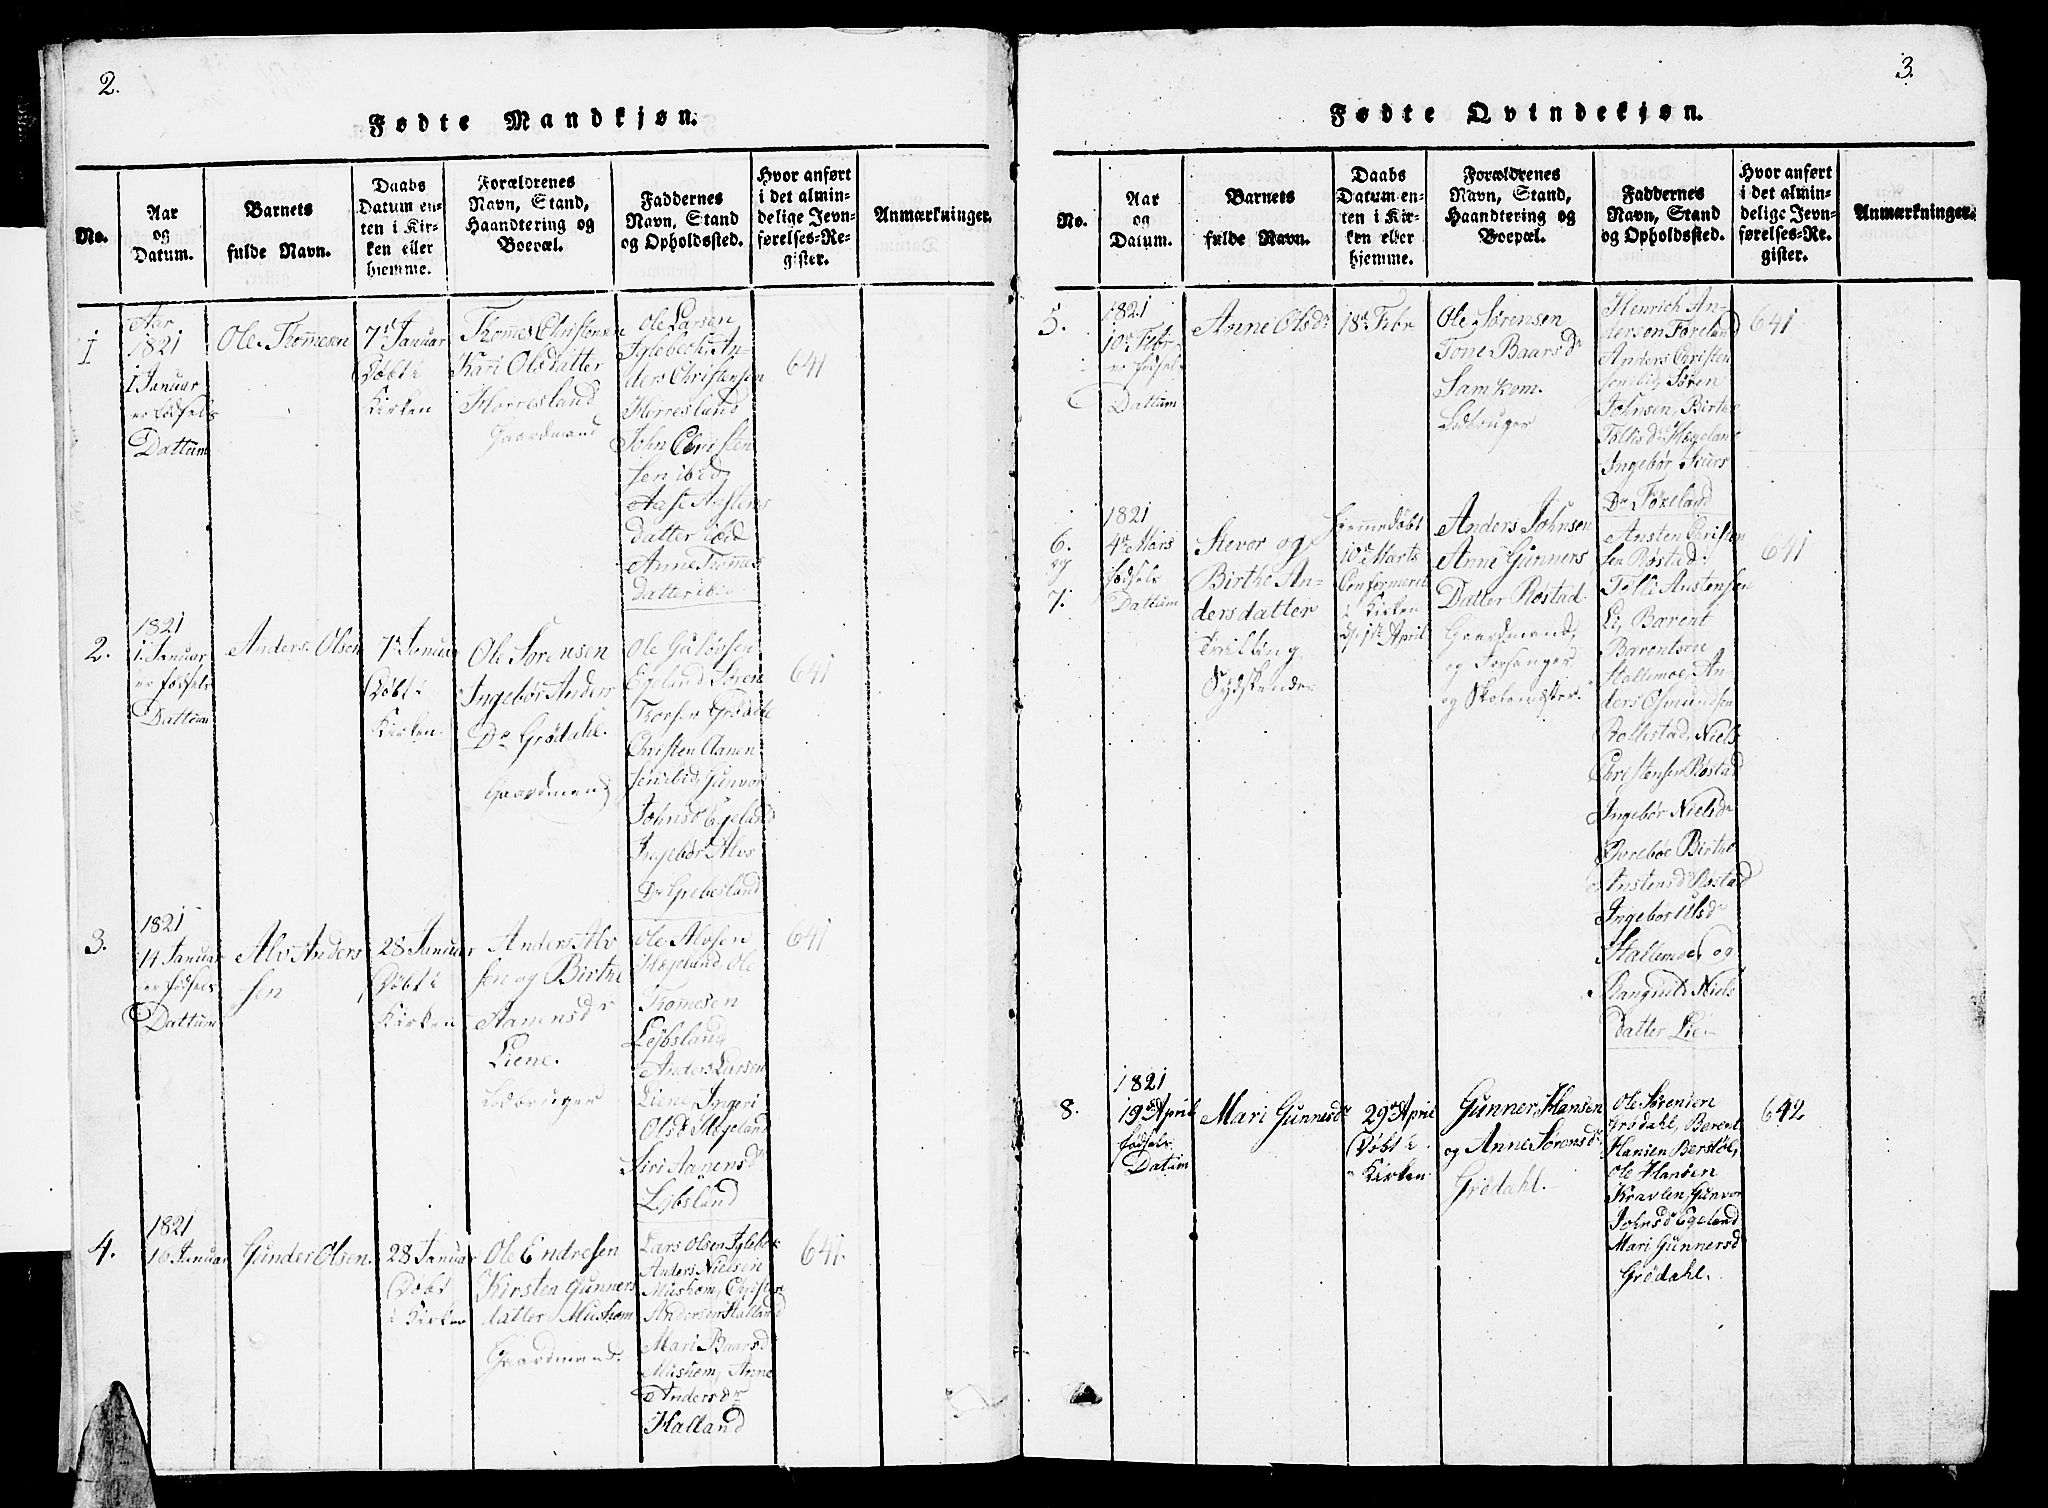 2.
Fødte Mandkjøn.
No.
Aar
og
Datum.
Barnets
fulde Navn.
Daabs
Datum en-
ten i Kir-
ken eller
hiemme.
Forældrenes
Navn, Stand,
Haandtering og
Boepæl.
Faddernes
Navn, Stand
og Opholdssted.
Hvor anført
i det almin-
delige Jevn-
førelses-Re-
gister.
Anmærkninger.
1
Aar
1821
1 Januar
er fødsels
Dattum
Ole Thommesen
7de Januar
Døbt i
Kirken
Thomes Christensen
Kari Olsdatter
Horresland
Gaardmand
Ole Larsen
Iglebech, An-
ders Christensen
Horresland
John Christen
sen ibid,
Aase Anstens
datter ibid
Anne Tommes
datter ibid.
641
2.
1821
1. Januar
er fødsels
Dattum
Anders Olsen
7de Januar
Døbt i
Kirken.
Ole Sørensen
Ingebør Anders
Dr Grødahl.
Gaardmand
Ole Guløvsen
Egeland, Søren
Thorsen Grødahl
Christen Aanen-
sen ibid, Gunvor
Johnsd Egeland
Ingebør Alvs
Dr Grebesland
641
3.
1821
14 Januar
er fødsels
Dattum
Alv Anders
sen
28 Januar
Døbt i
Kirken
Anders Alv
sen og Birthe
Aanensdr
Liene.
Ledbruger
Ole Alvsen
Hægeland, Ole
Thomesen
Lejbsland
Anders Larsen
Liene, Ingeri
Olsdr Hægeland
Siri Aanensd
Lejbsland
641
4.
1821
16 Januar
Gunder Olsen.
28 Januar
Døbt
i Kirken
Ole Endresen
Kirsten Gunners
datter Mushom
Gaardmand.
Lars Olsen Iglebek
Anders Nielsen
Mushom, Christen
Andersen Hatland
Mari Baarsd
Mushom, Anne
Andersdr
Hatland
641.
3.
Fødte Qvindekjøn.
No.
Aar
og
Datum.
Barnets
fulde Navn.
Daabs
Datum en-
ten i Kir-
ken eller
hjemme.
Forældrenes
Navn, Stand,
Haandtering og
Boepæl.
Faddernes
Navn, Stand
og Opholdssted.
Hvor anført
i det almin-
delige Jevn-
førelses-Re-
gister.
Anmærkninger.
5.
1821
10de Febr
er fødsels
Dattum
Anne Olsdr
18de Febr
Ole Sørensen
Tone Baarsdr
Samkom.
Ledbruger
Henrich An-
dersenFøreland
Anders Christen
sen ibid, Søren
Johnsen, Birthe
Tollisdr Hægeland
Ingebør Siurs
Dr Føreland
641
6.
og
7.
1821
4de Mars
fødsels
Dattum
Stevor og
Birthe An-
dersdatter
Tvilling
Sydskende.
Hiemmedøbt
10de Marts
Confermeret
i Kirken
d. 1ste April
Anders Johnsen
Anne Gunners
Datter Røstad.
Gaardmand,
og Forsanger
og Skolemester.
Ansten Christen
sen Røstad.
Tolli Anstensen
Li, Barent
Barentsen
Stallemoe, An-
ders Osmundsen
Rollestad, Niels
Christensen Røstad
Ingebør Nielsdr
Øvrebøe Birthe
Anstensdr Røstad
Ingebør Ulsdr
Stallemoe, og
Rangnil Niels
datter Lie.
641
8.
1821
19de April
fødsels
Datum
Mari Gunnersdr
29de April
Døbt i
Kirken
Gunner Hansen
og Anne Sørensdr
Grødahl.
Ole Sørensen
Grødahl, Berent
Hansen Berstøl,
Ole Hansen
Kravlen, Gunvor
Johnsdr Egeland
Mari Gunnersd
Grødahl.
642